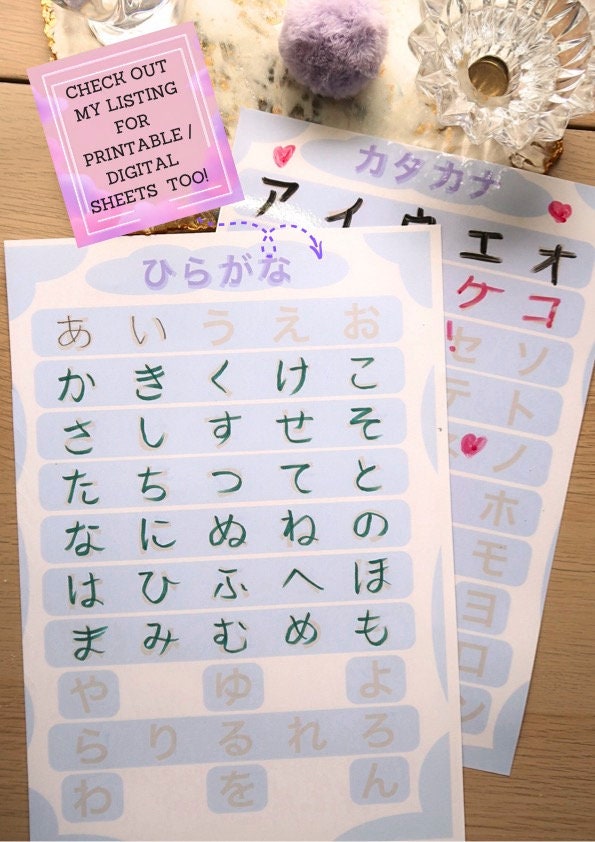 CHECK OUT
MY LISTING
FOR
PRINTABLE /
DIGITAL
SHEETS TOO!
カタカナ
アイウエオ
ケコ
!
セソ
テト
ノ
ホ
モ
ヨ
ロ
ン
ひらがな
あいうえお
かきくけこ
さしすせそ
たちつてと
なにぬねの
はひふへほ
まみむめも
やゆよ
らりるれろ
わをん